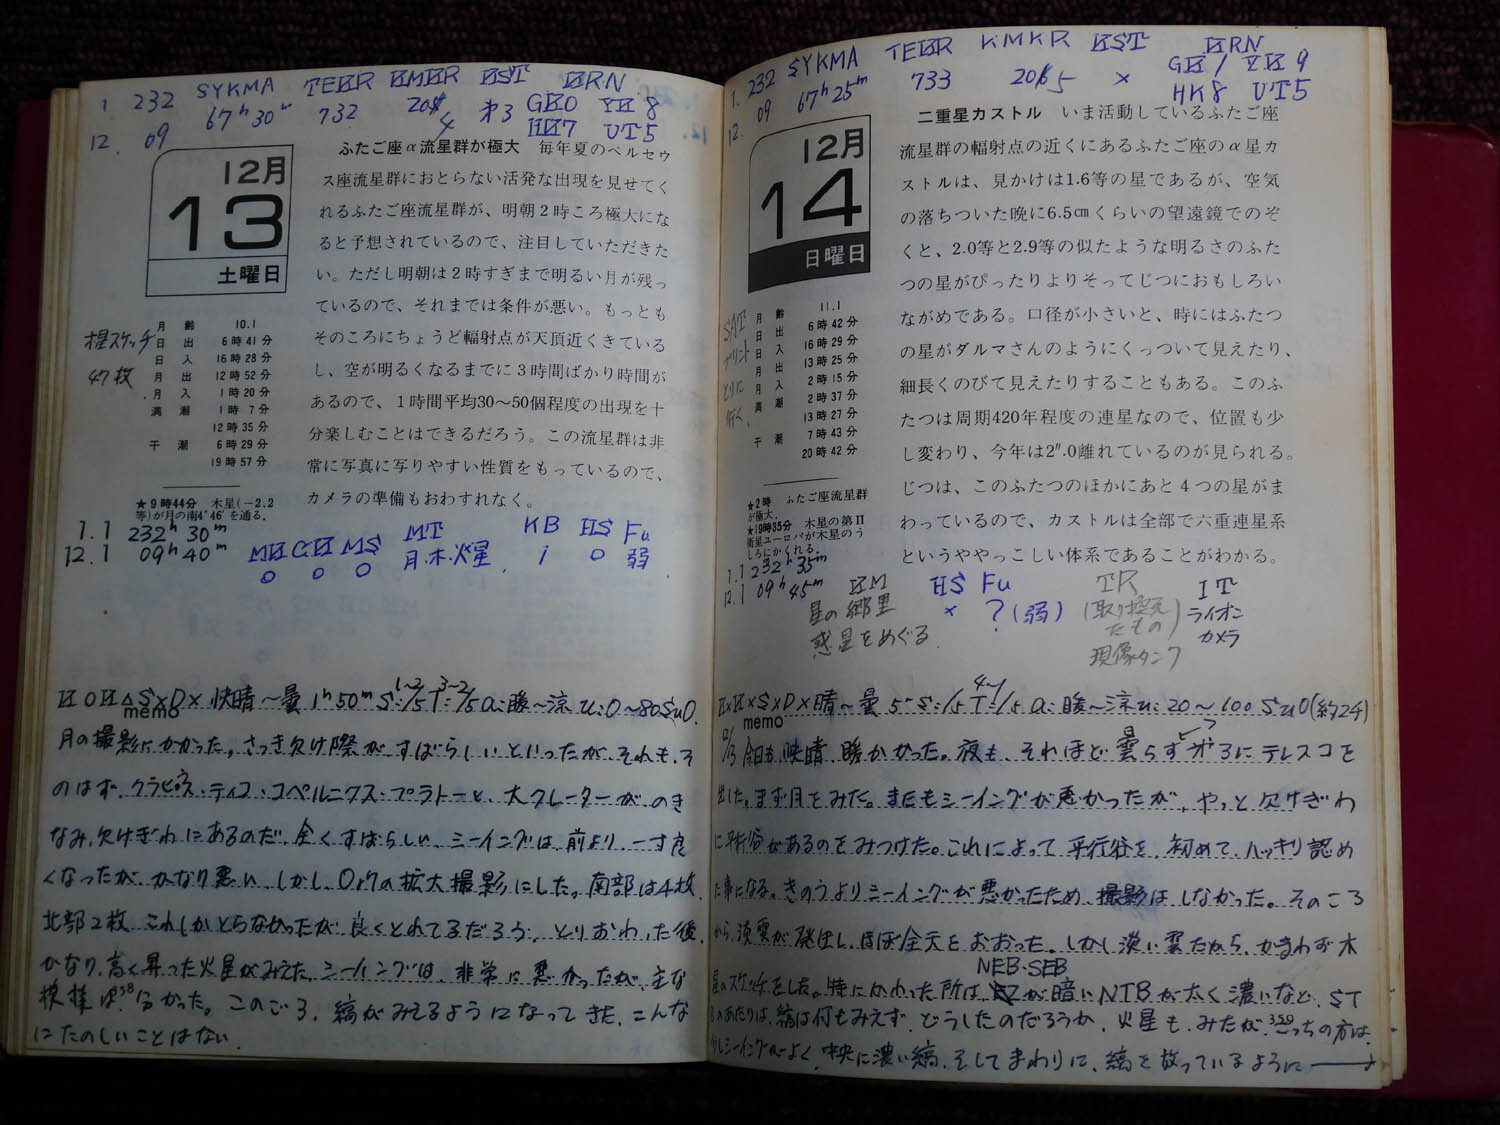 1. 232 SYKMA TEKR KMKR KST KRN
12. 09 67h30m 732 ㊍3 GK0 YK8
HK7 UT5
12月
13
土曜日
ふたご座α流星群が極大 毎年夏のペルセウ
ス座流星群におとらない活発な出現を見せてく
れるふたご座流星群が、明朝2時ころ極大にな
ると予想されているので、注目していただきた
い。ただし明朝は2時すぎまで明るい月が残っ
ているので、それまでは条件が悪い。もっとも
そのころにちょうど輻射点が天頂近くきている
し、空が明るくなるまでに3時間ばかり時間が
あるので、1時間平均30〜50個程度の出現を十
分楽しむことはできるだろう。この流星群は非
常に写真に写りやすい性質をもっているので、
カメラの準備もおわすれなく。
スケッチ
47枚
月齢 10.1
日出 6時41分
日入 16時28分
月出 12時52分
月入 1時20分
満潮 1時7分
12時35分
干潮 6時29分
19時57分
★9時44分 木星(−2.2
等)が月の南4°46′を通る.
1.1 232h30m
12.1 09h40m
MK GK MS MT KB HS Fu
0 0 0 月.木.火星 1 0 弱
memo
快晴〜曇 1h50m 暖〜涼 0〜80
月の撮影にかかった。さっき欠け際がすばらしいといったが、それも、そ
のはず、クラビウス・ティコ・コペルニクス・プラトーと、大クレーターが、のき
なみ、欠けぎわにあるのだ、全くすばらしい、シーイングは、前より、一寸良
くなったが、かなり悪い、しかし、Or7の拡大撮影にした。南部は4枚、
北部2枚、これしかとらなかったが、良くとれてるだろう、とりおわった後、
かなり、高く昇った火星がみえた、シーイングは、非常に悪かったが、主な
模様は、分かった。このごろ、縞がみえるようになってきた、こんな
にたのしいことはない.
1. 232 SYKMA TEKR KMKR KST KRN
12. 09 67h25m 733 × GK1 YK9
HK8 UT5
12月
14
日曜日
二重星カストル いま活動しているふたご座
流星群の輻射点の近くにあるふたご座のα星カ
ストルは、見かけは1.6等の星であるが、空気
の落ちついた晩に6.5㎝くらいの望遠鏡でのぞ
くと、2.0等と2.9等の似たような明るさのふた
つの星がぴったりよりそってじつにおもしろい
ながめである。口径が小さいと、時にはふたつ
の星がダルマさんのようにくっついて見えたり、
細長くのびて見えたりすることもある。このふ
たつは周期420年程度の連星なので、位置も少
し変わり、今年は2″.0離れているのが見られる。
じつは、このふたつのほかにあと4つの星がま
わっているので、カストルは全部で六重連星系
というややっこしい体系であることがわかる。
SAT
プリント
とりに
行く.
月齢 11.1
日出 6時42分
日入 16時29分
月出 13時25分
月入 2時15分
満潮 2時37分
13時27分
干潮 7時43分
20時42分
★2時 ふたご座流星群
が極大.
★19時35分 木星の第Ⅱ
衛星ユーロパが木星のう
しろにかくれる.
1.1 232h35m
12.1 09h45m
KM HS Fu TR IT
星の郷里 × ?(弱) (取り換え ライオン
惑星をめぐる たもの) カメラ
現像タンク
memo
晴〜曇 暖〜涼 20〜100 (約24)
12/13 今日も、快晴、暖かかった。夜も、それほど曇らずにテレスコを
出した。まず月をみた。またもシーイングが悪かったが、やっと欠けぎわ
に平行谷があるのをみつけた。これによって平行谷を、初めて、ハッキリ認め
た事になる。きのうよりシーイングが悪かったため、撮影はしなかった。そのころ
から、淡雲が発生し、ほぼ全天をおおった。しかし淡い雲だから、かまわず木
NEB・SEB
星のスケッチをした。特にかわった所は が暗いNTBが太く濃いなど、ST
のあたりは、縞は何もみえず、どうしたのだろうか、火星も、みたが、こっちの方は、
シーイングがよく、中央に濃い縞、そしてまわりに、縞を放っているように→